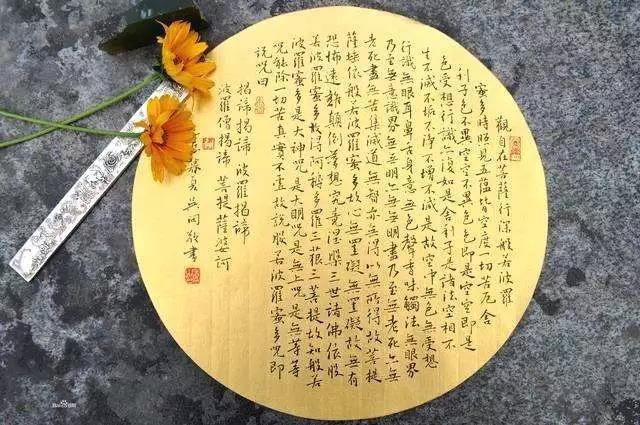 觀自在菩薩行深般若波羅
蜜多時照見五蘊皆空度一切苦厄舍
利子色不異空空不異色色即是空空即是
色受想行識亦復如是舍利子是諸法空相不
生不滅不垢不淨不增不減是故空中無色無受想
行識無眼耳鼻舌身意無色聲香味觸法無眼界
乃至無意識界無無明亦無無明盡乃至無老死亦無
老死盡無苦集滅道無智亦無得以無所得故菩提
薩埵依般若波羅蜜多故心無罣礙無罣礙故無有
恐怖遠離顛倒夢想究竟涅槃三世諸佛依般
若波羅蜜多故得阿耨多羅三藐三菩提故知般若
波羅蜜多是大神咒是大明咒是無上咒是無等等
咒能除一切苦真實不虛故說般若波羅蜜多咒即
說咒曰
揭諦揭諦 波羅揭諦
波羅僧揭諦 菩提薩婆訶
春 敬書
Bai百科